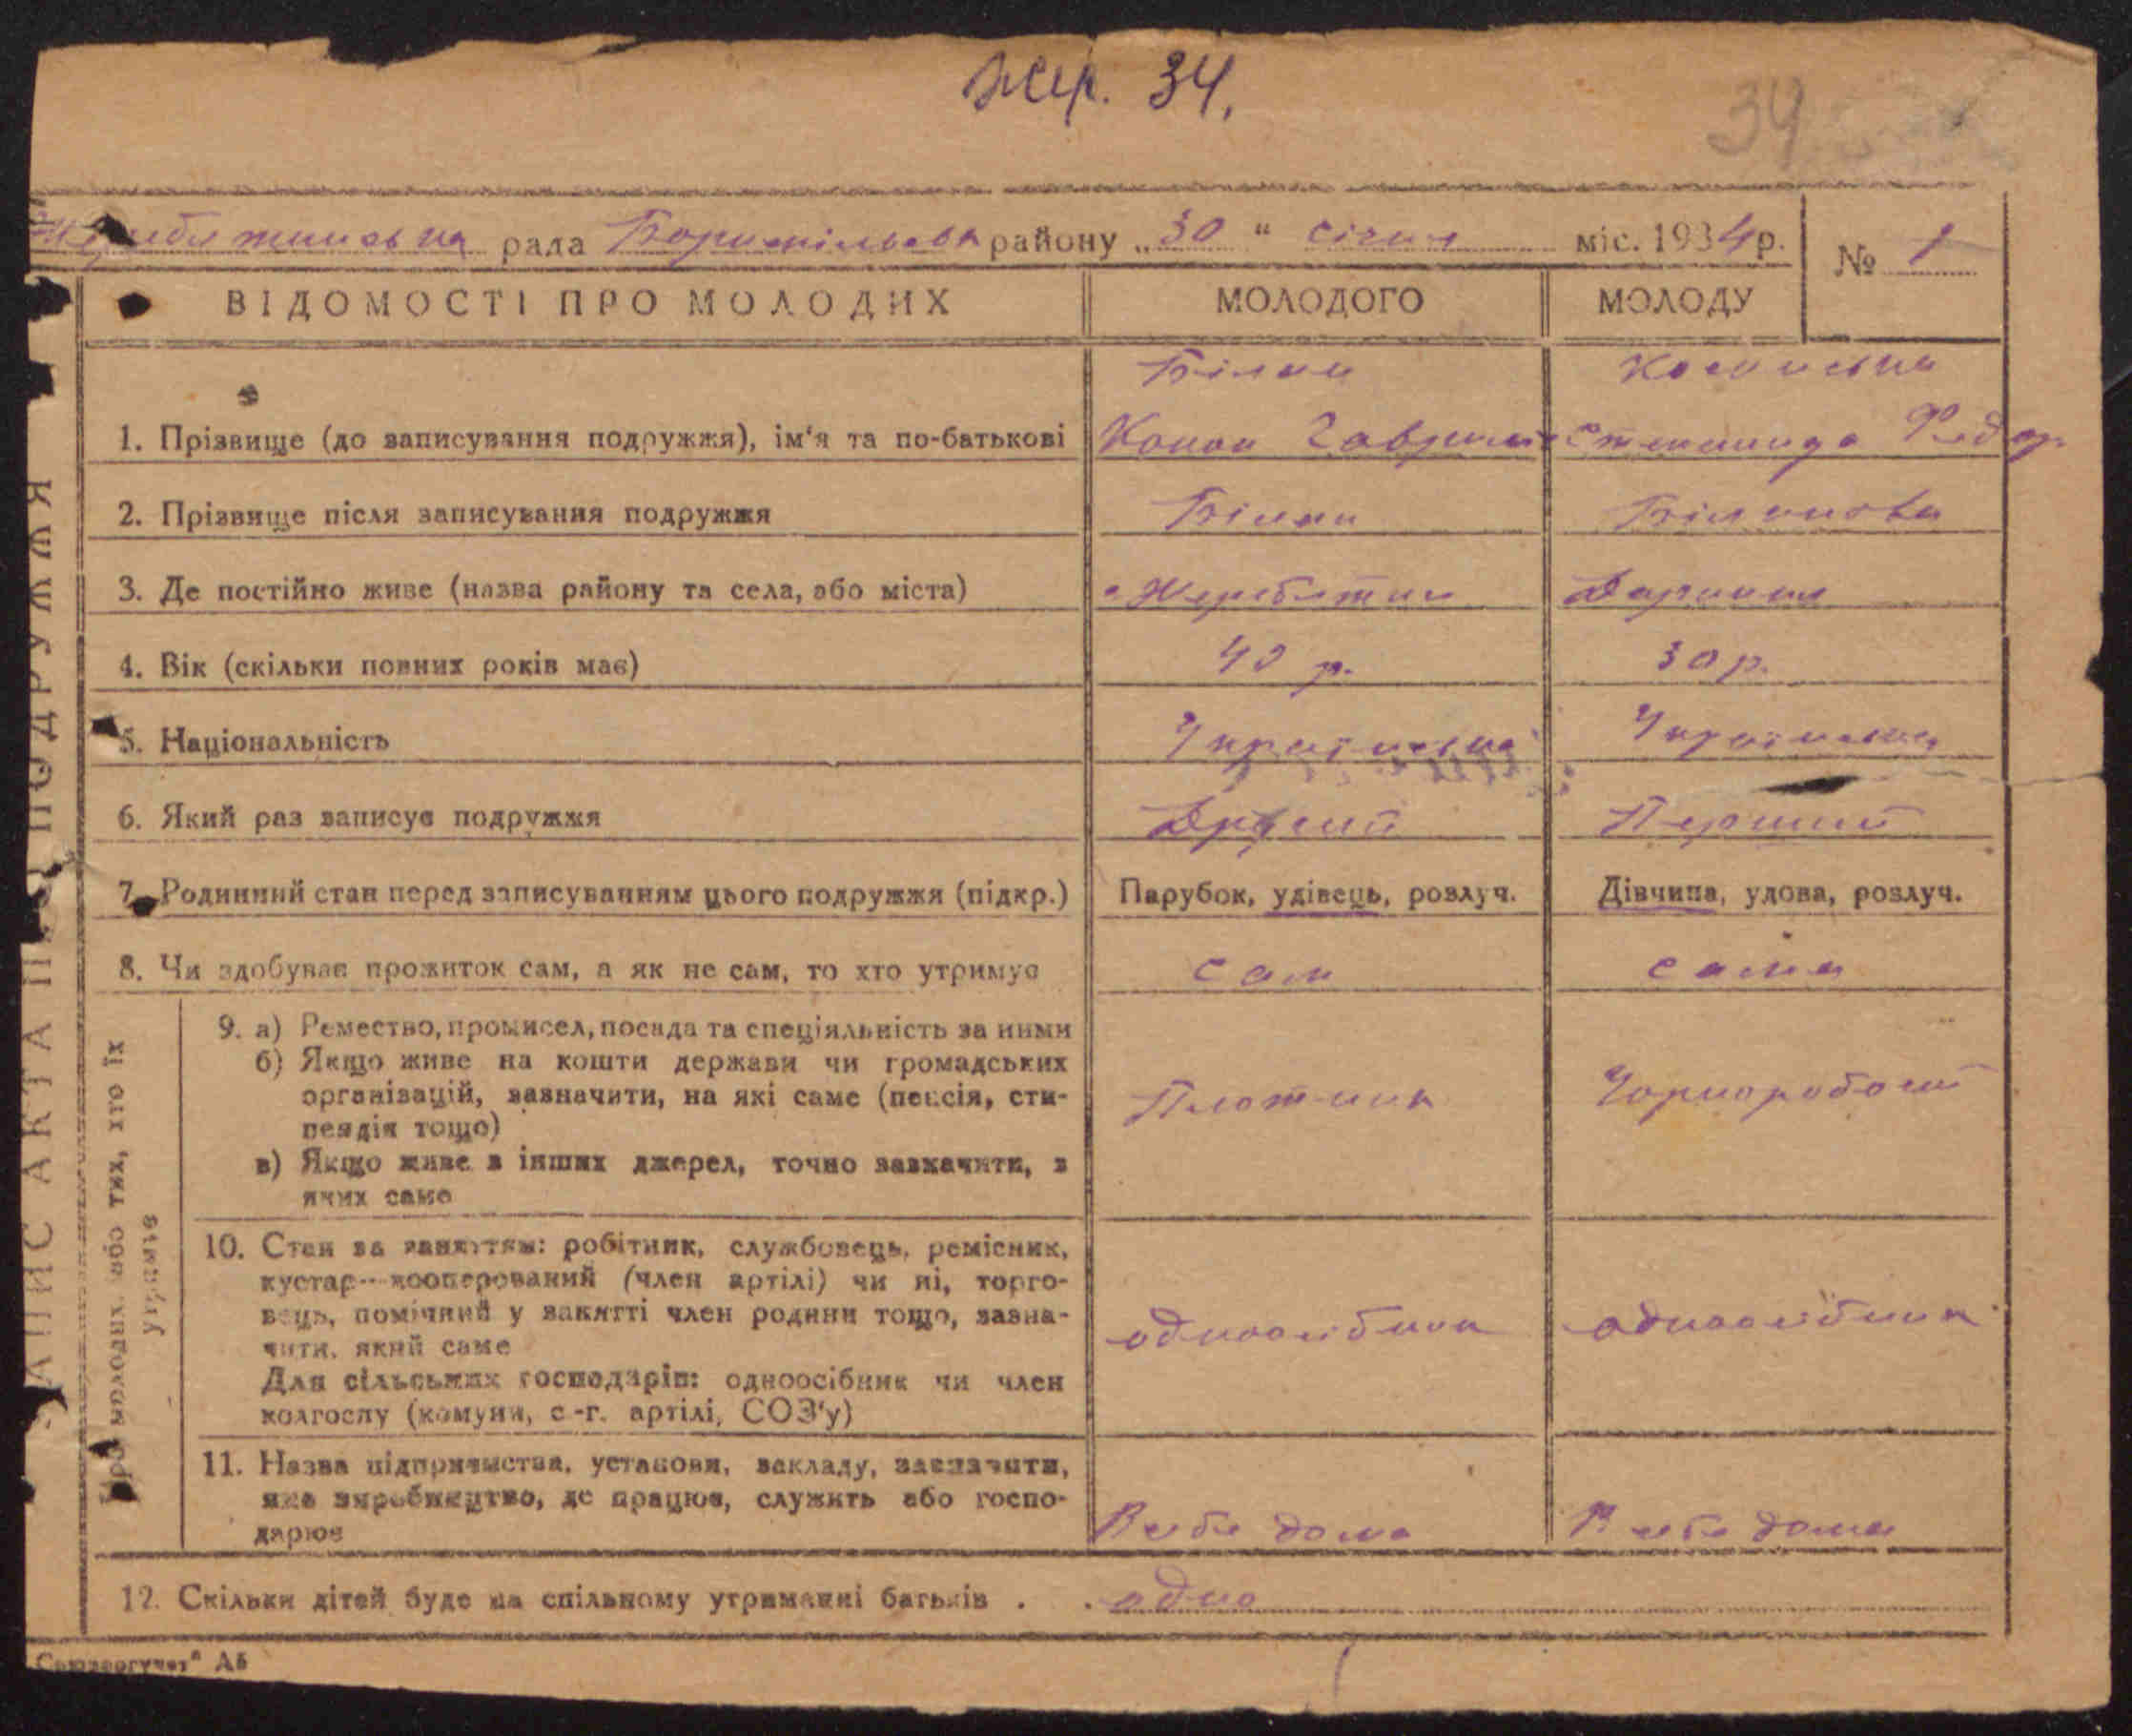 Жер. 34.
34
Жеребятинська рада Бориспільськ району „30“ січня міс. 1934 р. № 1
ВІДОМОСТІ ПРО МОЛОДИХ МОЛОДОГО МОЛОДУ
Білан
1. Прізвище (до записування подружжя), ім'я та по-батькові Конон Гаврил Федор
2. Прізвище після записування подружжя Білан Біланова
3. Де постійно живе (назва району та села, або міста) Жеребятин Дарниця
4. Вік (скільки повних років має) 40 р. 30 р.
5. Національність Українська Українська
6. Який раз записує подружжя Другий Перший
7. Родинний стан перед записуванням цього подружжя (підкр.) Парубок, удівець, розлуч. Дівчина, удова, розлуч.
8. Чи здобував прожиток сам, а як не сам, то хто утримує сам сама
9. а) Ремество, промисел, посада та спеціяльність за ними
б) Якщо живе на кошти держави чи громадських
організацій, зазначити, на які саме (пенсія, сти-
пендія тощо) Плотник Чорноробочий
в) Якщо живе з інших джерел, точно зазначити, з
яких саме
10. Стан за заняттям: робітник, службовець, ремісник,
кустар—кооперований (член артілі) чи ні, торго-
вець, помічний у занятті член родини тощо, зазна-
чити, який саме одноосібник одноосібник
Для сільських господарів: одноосібник чи член
колгоспу (комуни, с.-г. артілі, СОЗ'у)
11. Назва підприємства, установи, закладу, зазначити,
яке виробництво, де працює, служить або госпо-
дарює В себе дома В себе дома
12. Скільки дітей буде на спільному утриманні батьків . . одно
ЗАПИС АКТА ПРО ПОДРУЖЖЯ
Про молодих, або тих, хто їх
утримує